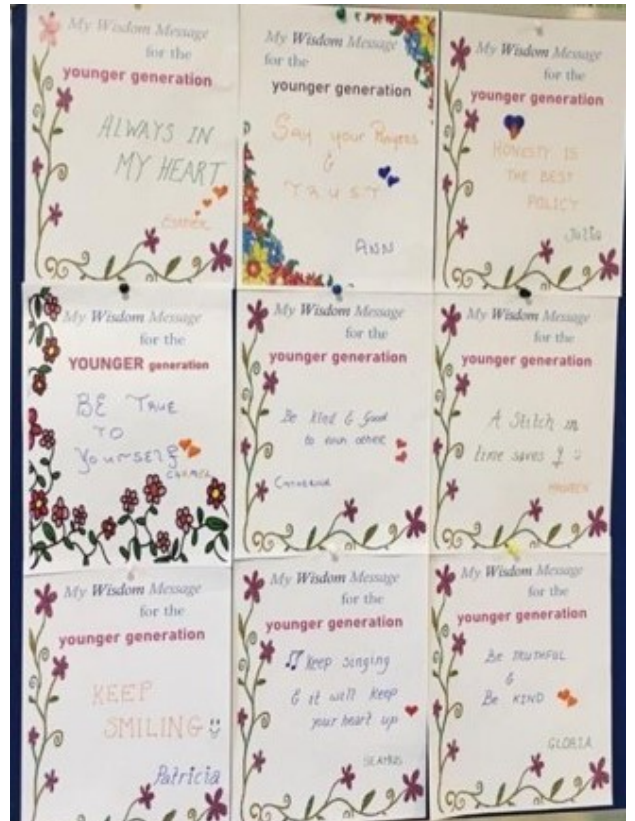 My Wisdom Message
for the
younger generation
ALWAYS IN
MY HEART
ESTHER
My Wisdom Message
for the
younger generation
Say your Prayers
&
TRUST
ANN
My Wisdom Message
for the
younger generation
HONESTY IS
THE BEST
POLICY
Julia
My Wisdom Message
for the
YOUNGER generation
BE TRUE
TO
YOURSELF
CARMEL
My Wisdom Message
for the
younger generation
Be kind & Good
to each other
Catherine
My Wisdom Message
for the
younger generation
A Stitch in
time saves 9
MAUREEN
My Wisdom Message
for the
younger generation
KEEP
SMILING
Patricia
My Wisdom Message
for the
younger generation
Keep singing
& it will keep
your heart up
SEAMUS
My Wisdom Message
for the
younger generation
Be TRUTHFUL
&
Be KIND
GLORIA